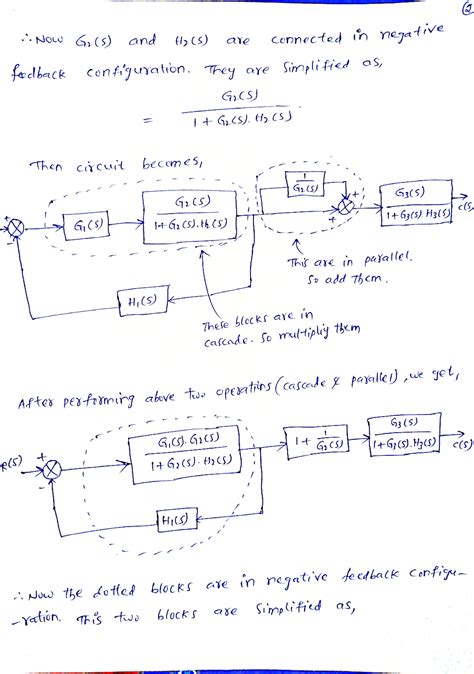 2
∴ Now G2(S) and H2(S) are connected in negative
feedback configuration. They are simplified as,
= G2(S) / 1 + G2(S). H2(S)
Then circuit becomes,
+
-
G1(S)
G2(S) / 1+G2(S).H2(S)
1 / G2(S)
+
+
G3(S) / 1+G3(S) H3(S)
C(S)
H1(S)
This are in parallel.
So add them.
These blocks are in
cascade. So multipliy them
After performing above two operations (cascade & parallel), we get,
R(S)
+
-
G1(S). G2(S) / 1+G2(S). H2(S)
1 + 1 / G2(S)
G3(S) / 1+G3(S).H3(S)
C(S)
H1(S)
∴ Now the dotted blocks are in negative feedback configu-
-ration. This two blocks are simplified as,